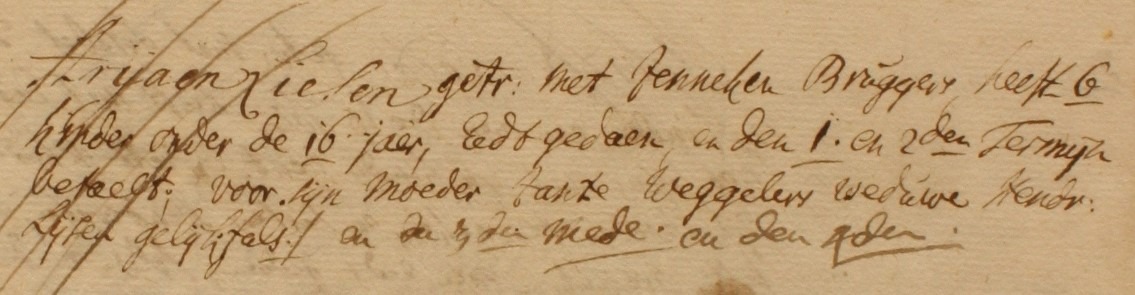 Arijaen Lielen getr: met Jenneken Bruggers heeft 6
kinder onder de 16 jaer, Eedt gedaen, en den 1. en 2den Termijn
betaelt; voor sijn moeder tante Weggelers weduwe Hendr:
gelijkfals. / en den 3den mede. en den 4den.